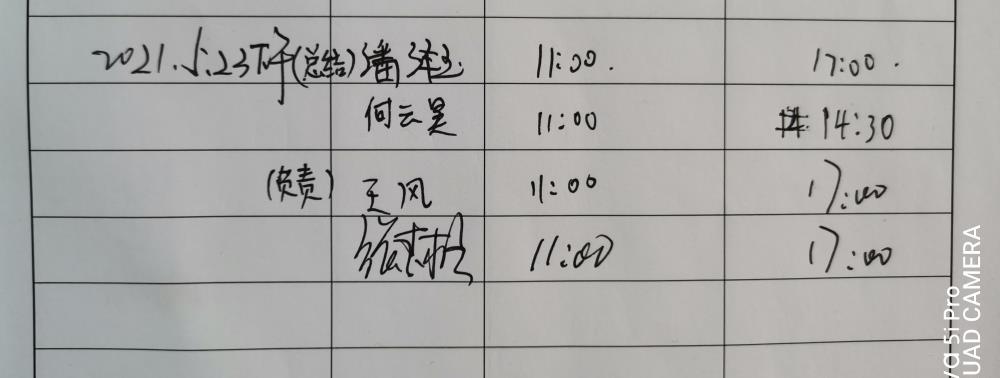 2021.5.23下午(总结) 潘泽玉 11:00. 17:00.
何云昊 11:00 14:30
(负责) 王风 11:00 17:00
11:00 17:00
a 5i Pro
UAD CAMERA